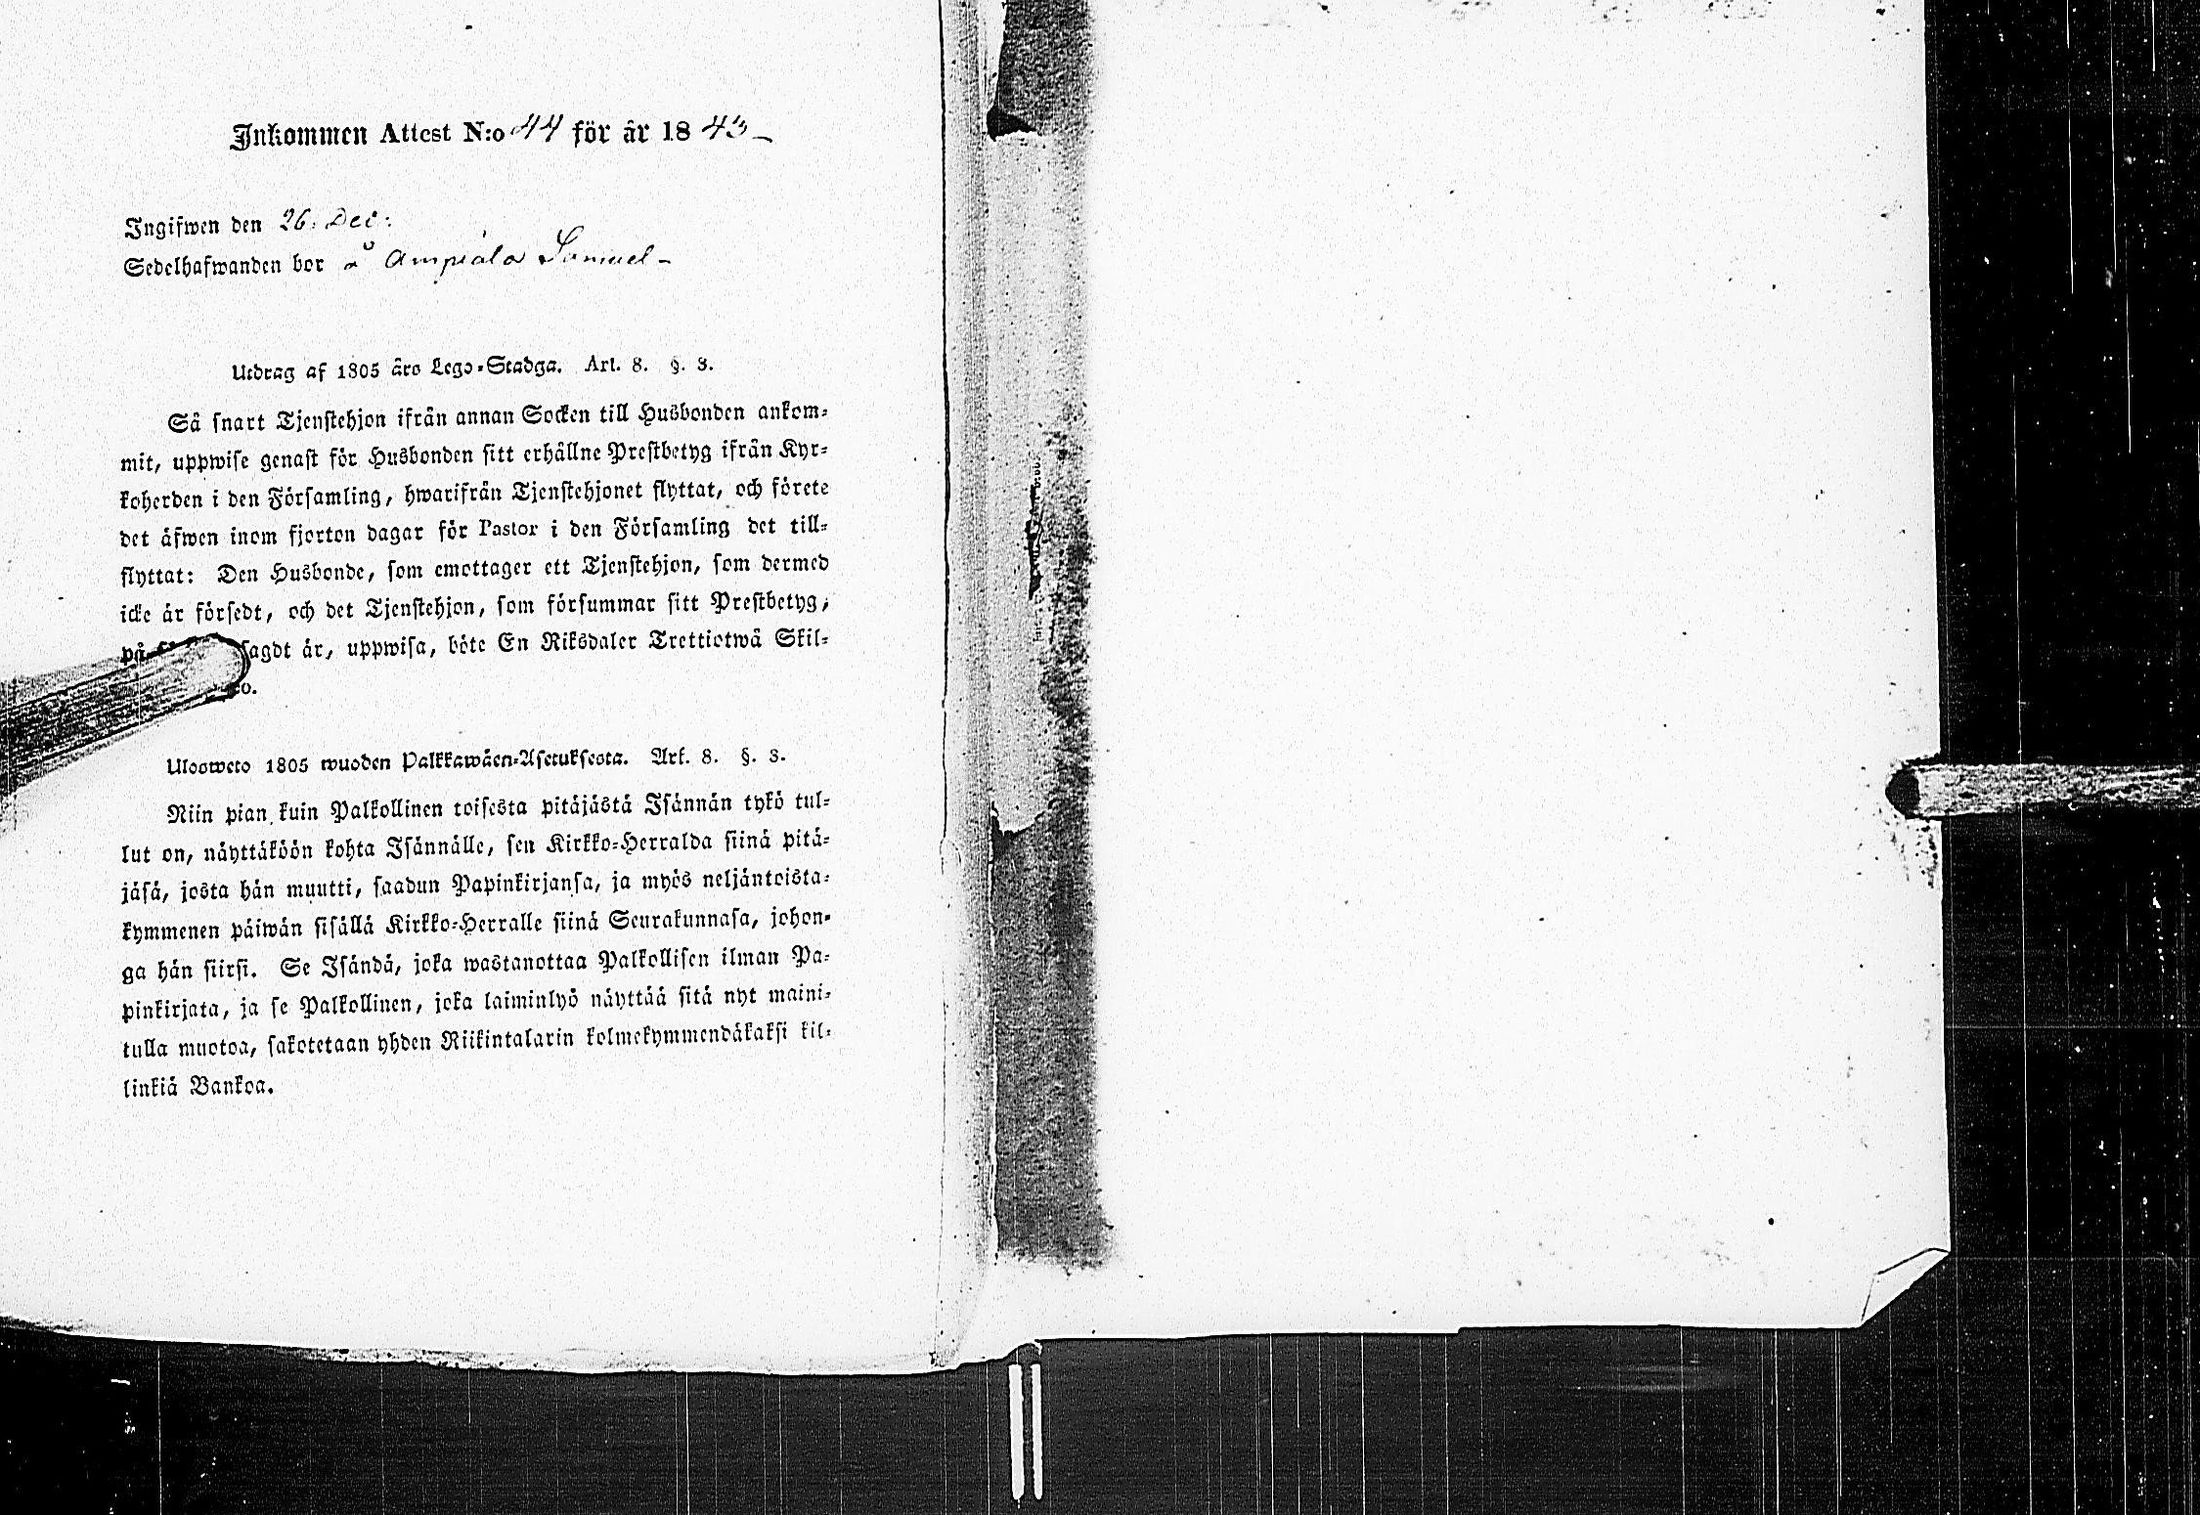 Inkommen Attest N:o 44 för år 1843
Ingifwen den 26. Dec:
Sedelhafwanden bor å Ampiala Samuel
Utdrag af 1805 års Lego-Stadga. Art. 8. §. 3.
Så snart Tjenstehjon ifrån annan Socken till Husbonden ankom-
mit, uppwise genast för Husbonden sitt erhållne Prestbetyg ifrån Kyr-
koherden i den Församling, hwarifrån Tjenstehjonet flyttat, och förete
det äfwen inom fjorton dagar för Pastor i den Församling det till-
flyttat: Den Husbonde, som emottager ett Tjenstehjon, som dermed
icke är försedt, och det Tjenstehjon, som försummar sitt Prestbetyg,
på sagdt är, uppwisa, böte En Riksdaler Trettiotwå Skil-
co.
Ulosweto 1805 wuoden Palkkawäen-Asetuksesta. Art. 8. §. 3.
Niin pian kuin Palkollinen toisesta pitäjästä Isännän tykö tul-
lut on, näyttäköön kohta Isännälle, sen Kirkko-Herralda siinä pitä-
jäsä, josta hän muutti, saadun Papinkirjansa, ja myös neljäntoista-
kymmenen päiwän sisällä Kirkko-Herralle siinä Seurakunnasa, johon-
ga hän siirsi. Se Isändä, joka wastanottaa Palkollisen ilman Pa-
pinkirjata, ja se Palkollinen, joka laiminlyö näyttää sitä nyt maini-
tulla muotoa, sakotetaan yhden Riikintalarin kolmekymmendäkaksi kil-
linkiä Bankoa.